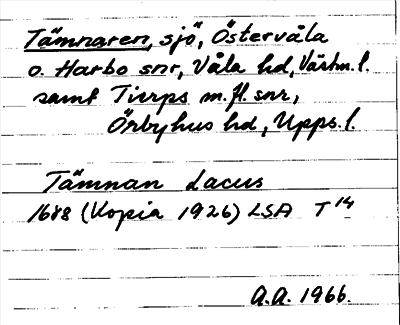 Tämnaren, sjö, Östervåla
o. Harbo snr, Våla hd, Västm. l.
samt Tierps m. fl. snr,
Örbyhus hd, Upps. l.
Tämnan Lacus
1688 (Kopia 1926) LSA T 14
A.A. 1966.